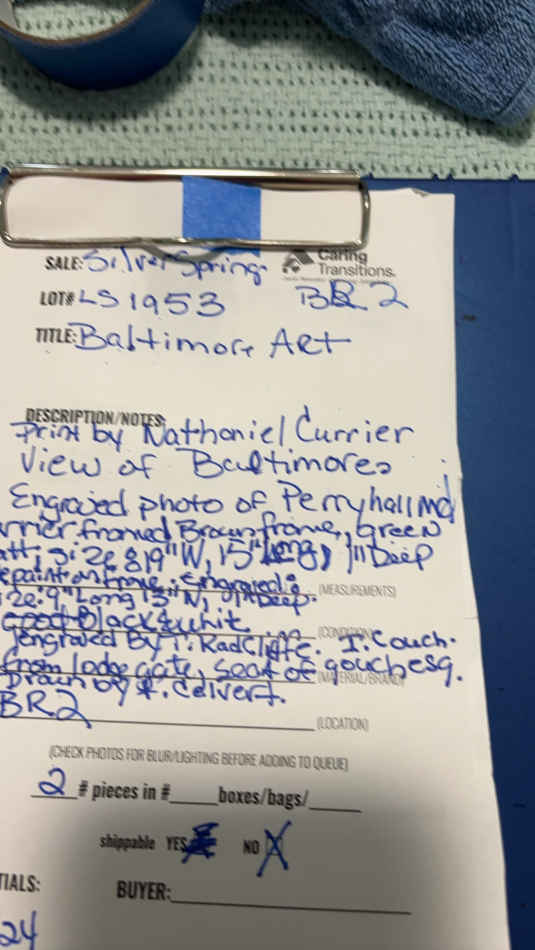 SALE: Silver Spring. Caring Transitions.
LOT# LS 1953 BR2
TITLE: Baltimore Art
DESCRIPTION/NOTES:
Print by Nathaniel Currier
View of Baltimore.
Engraved photo of Perryhall md
rrier framed Brown frame, green
att, size 19"W, 15" long, 1" Deep
paint on frame. Engraved:
(MEASUREMENTS)
ize: 9" Long 13" W, 1" Deep.
good Black & whit
(CONDITION)
engraved By T. Radcliffe. I. Couch.
from lodge gate, Seat of gouch esq.
(MATERIAL/BRAND)
Drawn by calvert.
BR2
(LOCATION)
(CHECK PHOTOS FOR BLUR/LIGHTING BEFORE ADDING TO QUEUE)
2 # pieces in # boxes/bags/
shippable YES NO X
TIALS: BUYER:
24